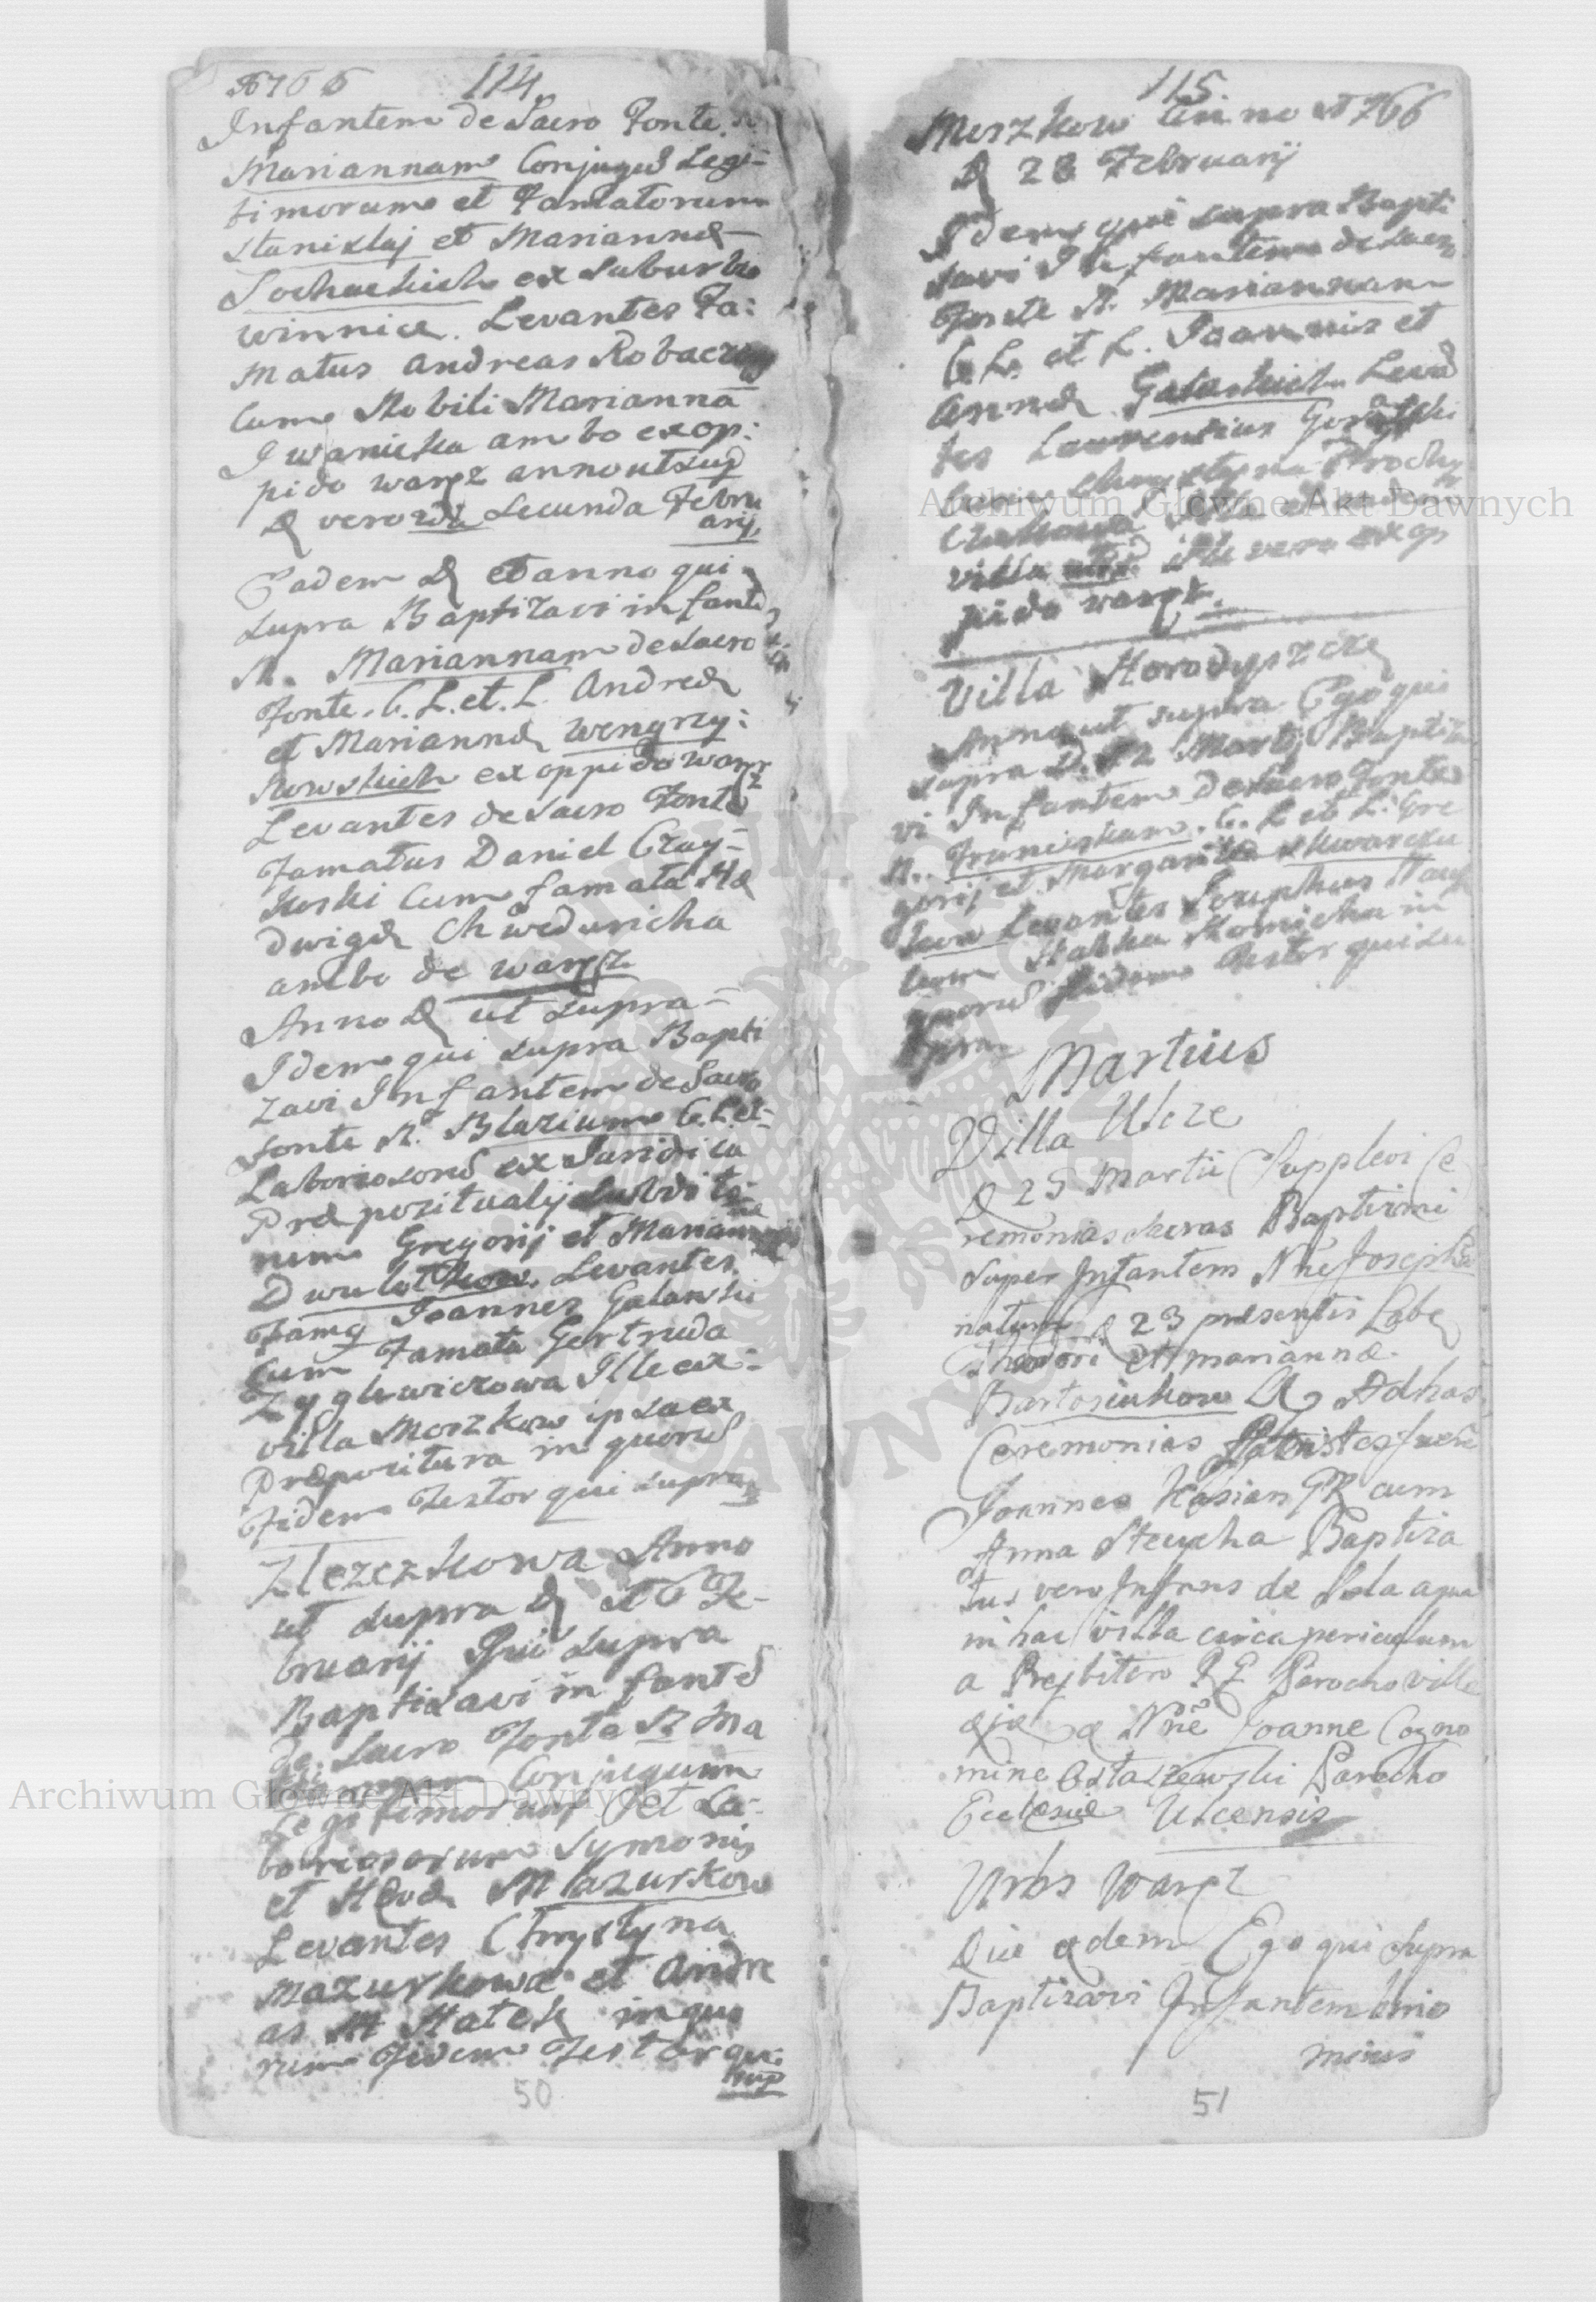 1766 114.
Infantem de Sacro Fonte N.
Mariannam Conjugũ Legi-
timorum et Famatorum
Stanislaj et Mariannæ
Sochackich ex Suburbio
Winnice. Levantes Fa:
matus Andreas Robaczy
cum Nobili Marianna
Iwanicka ambo ex op:
pido Waręz anno ut sup
D vero 2da Secunda Febru
arij,
Eadem D et anno qui
supra Baptizavi infantẽ
N. Mariannam de Sacro
Fonte. C. L. et. L. Andreæ
et Mariannæ Wengrzy:
nowskich ex oppido Waręz
Levantes de Sacro Fonte
Famatus Daniel Czay-
koski cum famata He
dwigæ Chweduricha
ambo de Waręz
Anno D ut supra-
Idem qui supra Bapti
zavi Infantem de Sacro
Fonte N. Blazium C. L. et-
Laboriosorũ ex Iuridica
Præpozitualij subdito-
rum Gregorij et Marian
Levantes.
Fam9 Joannes Galanski
cum Famata Gertruda
Zyglewiczowa Ille ex-
villa Morzkow ipsa ex
Præpozitura in quorũ
Fidem Testor qui supra
Anno
ut supra D 16 Fe-
bruarij Qui supra
Baptizavi infantẽ
de Sacro Fonte N. Ma
Conjugum
Legitimorum et La-
boriosorum Symonis
et Hevæ Mazurkow
Levantes Chrystyna
Mazurkowa et Andre
as Hatek in quo
rum Fidem Testor qui
sup
50
115.
Morzkow Anno 1766
D 28 Februarij
Idem qui supra Bapti
zavi Infantem de Sacro
Fonte N. Mariannam
C. L. et L. Joannis et
Annæ Galanskich Levã
tes Laurentius
cum Chrystyna
villa
illa vero ex op
pido Waręz.
Villa Horodyszcze
Anno ut supra Ego qui
supra D. 12 Martij Baptiza
vi Infantem de Sacro Fonte
N. Franciskum. C. L et L. Gre
gorij et Margaritæ
Levantes Josephus
cum in
quorũ Fidem Testor qui su
pra
Martius
Villa Uhrze
D 25 Martii Supplevi Ce
remonias sacras Baptismi
super Infantem Nñe Joseph
natum D 23 presentis Labe
Theodori et Mariannæ
Bartosiukow LC Ad has
Ceremonias Patrini
Joannes Kasian GR cum
Anna Steucha Baptiza
tus vero Infans de Sola aqua
in hac villa circa periculum
a Presbitero R G Parocho villæ
ejæ Nñe Joanne Cogno
mine Ostaszewski Parocho
Ecclesiæ
Urbs Waręz
Die eadem Ego qui supra
Baptizavi Infantem bino
minis
51
Archiwum Główne Akt Dawnych
Archiwum Główne Akt Dawnych